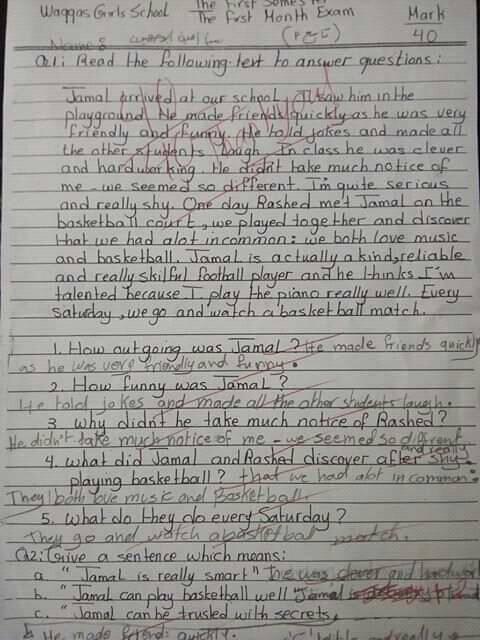 Waqqas Girls School The First Semester
The First Month Exam Mark
(P&E) 40
Name:
Q1: Read the following text to answer questions:
Jamal arrived at our school. I saw him in the
playground. He made friends quickly as he was very
friendly and funny. He told jokes and made all
the other students laugh. In class he was clever
and hard working. He didn't take much notice of
me - we seemed so different. I'm quite serious
and really shy. One day Rashed met Jamal on the
basketball court, we played together and discover
that we had alot incommon: we both love music
and basketball. Jamal is actually a kind, reliable
and really skilful football player and he thinks I'm
talented because I play the piano really well. Every
Saturday, we go and watch a basketball match.
1. How outgoing was Jamal? He made friends quickly
as he was very friendly and funny.
2. How funny was Jamal?
He told jokes and made all the other students laugh.
3. why didn't he take much notice of Rashed?
He didn't take much notice of me - we seemed so different
and really
4. what did Jamal and Rashed discover after shy.
playing basketball? that we had alot incommon:
They both love music and Basketball.
5. what do they do every Saturday?
They go and watch a basketball match.
Q2: Give a sentence which means:
a. "Jamal is really smart" he was clever and
b. "Jamal can play basketball well" Jamal is
c. "Jamal can be trusted with secrets,
He made friends quickly.